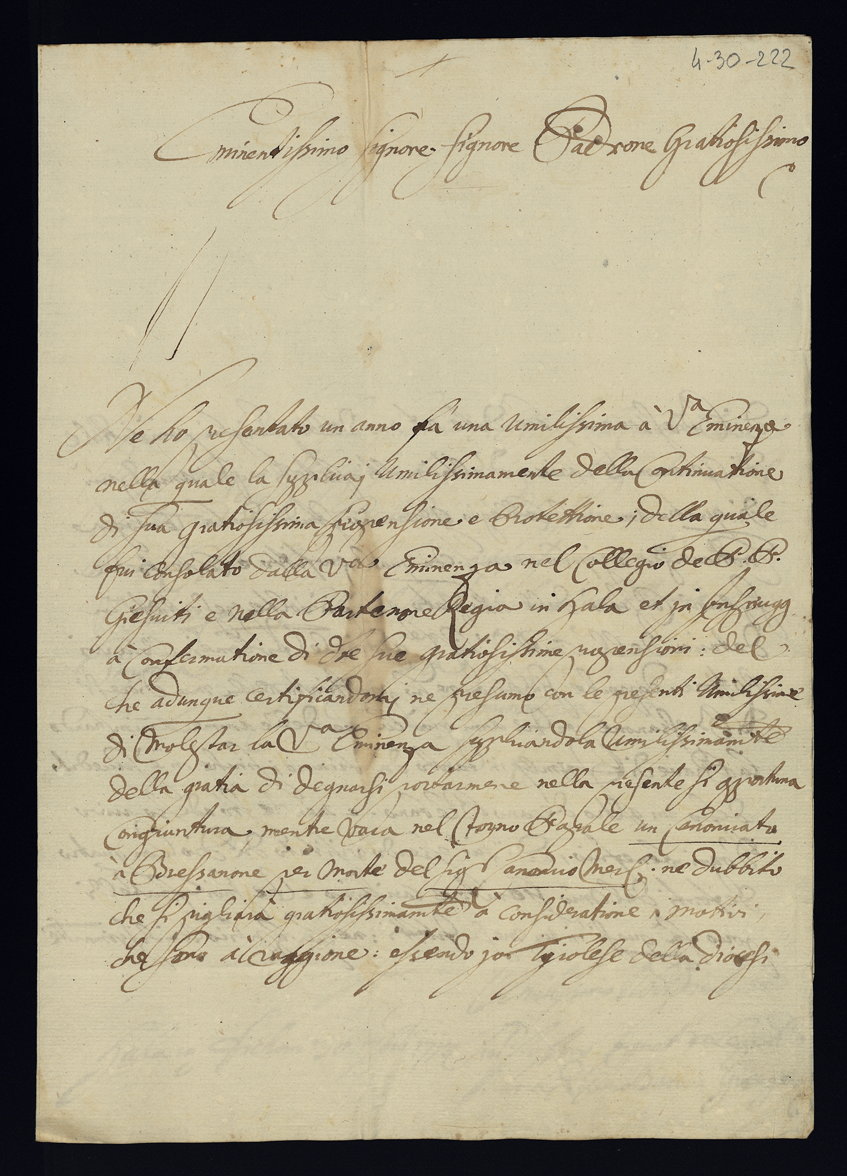 4-30-222
Eminentissimo Signore Signore Padrone Gratiosissimo
Ne ho presentato un anno fà una Umilissima à Vª Eminenza
nella quale la supplicaj Umilissimamente della Continuatione
di sua gratiosissima propensione e Protettione; della quale
fui consolato dalla Vª Eminenza nel Collegio de P. P.
Giesuiti e nella Partenone Regia in Hala et in Insprugg
à Confirmatione di dte sue gratiosissime propensioni: del
che adunque certificandomj ne presumo con le presenti Umilissime
di Molestar la Vª Eminenza supplicandola Umilissimamte
della gratia di degnarsi portarmene nella presente si opportuna
Congiuntura, mentre vaca nel Torno Papale un Canonicato
à Bressanone per morte del Sigr ne dubbito
che si pigliarà gratiosissimamte à consideratione i motivi,
che sono à raggione: essendo jo Tyrolese della Diocesi